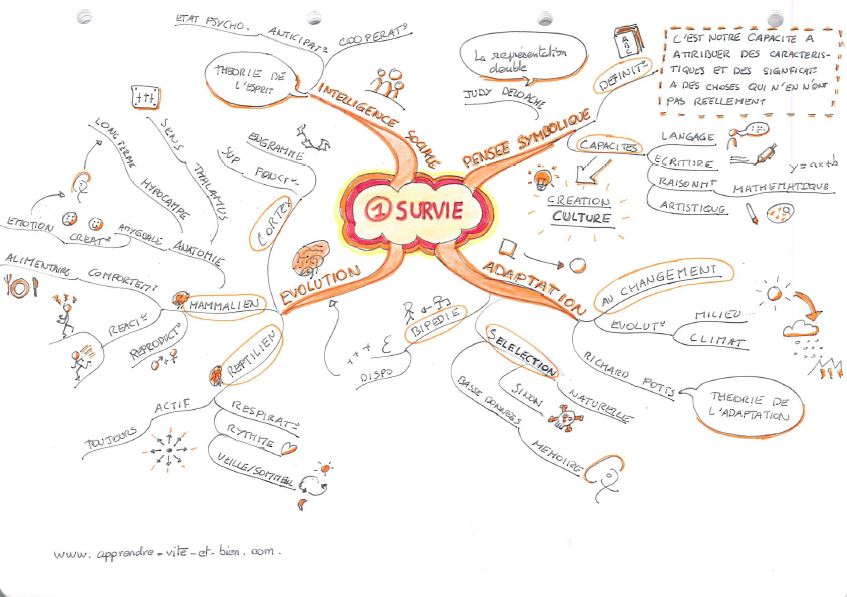 ① SURVIE
INTELLIGENCE SOCIALE
THEORIE DE
L'ESPRIT
ANTICIPATº
ETAT PSYCHO.
COOPERATº
PENSEE SYMBOLIQUE
La représentation
double
JUDY DELOACHE
DEFINITº
ABC
C'EST NOTRE CAPACITE A
ATTRIBUER DES CARACTERIS-
TIQUES ET DES SIGNIFICATº
A DES CHOSES QUI N'EN N'ONT
PAS REELLEMENT
CAPACITES
LANGAGE
ECRITURE
RAISONMT
MATHEMATIQUE
y=ax+b
ARTISTIQUE
CREATION
CULTURE
ADAPTATION
AU CHANGEMENT
EVOLUTº
MILIEU
CLIMAT
RICHARD POTTS
THEORIE DE
L'ADAPTATION
SELELECTION
NATURELLE
SINON
BASSE DONNEES
MEMOIRE
BIPEDIE
DISPO
+++
EVOLUTION
CORTEX
ENGRAMME
SUP FONCTº
MAMMALIEN
ANATOMIE
THALAMUS
SENS
HYPOCAMPE
LONG TERME
AMYGDALE
CREATº
EMOTION
COMPORTEMT
ALIMENTAIRE
REACTº
REPRODUCTº
REPTILIEN
ACTIF
TOUJOURS
RESPIRATº
RYTHME
VEILLE/SOMMEIL
www.apprendre-vite-et-bien.com.